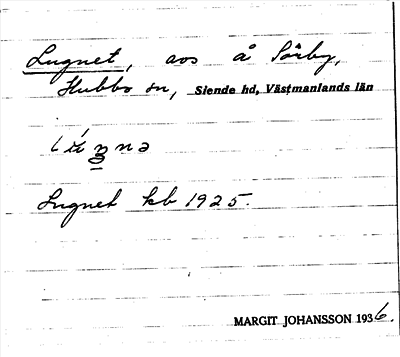 Lugnet, avs å Sörby,
Hubbo sn, Siende hd, Västmanlands län
Lugnet kb 1925.
MARGIT JOHANSSON 1936.